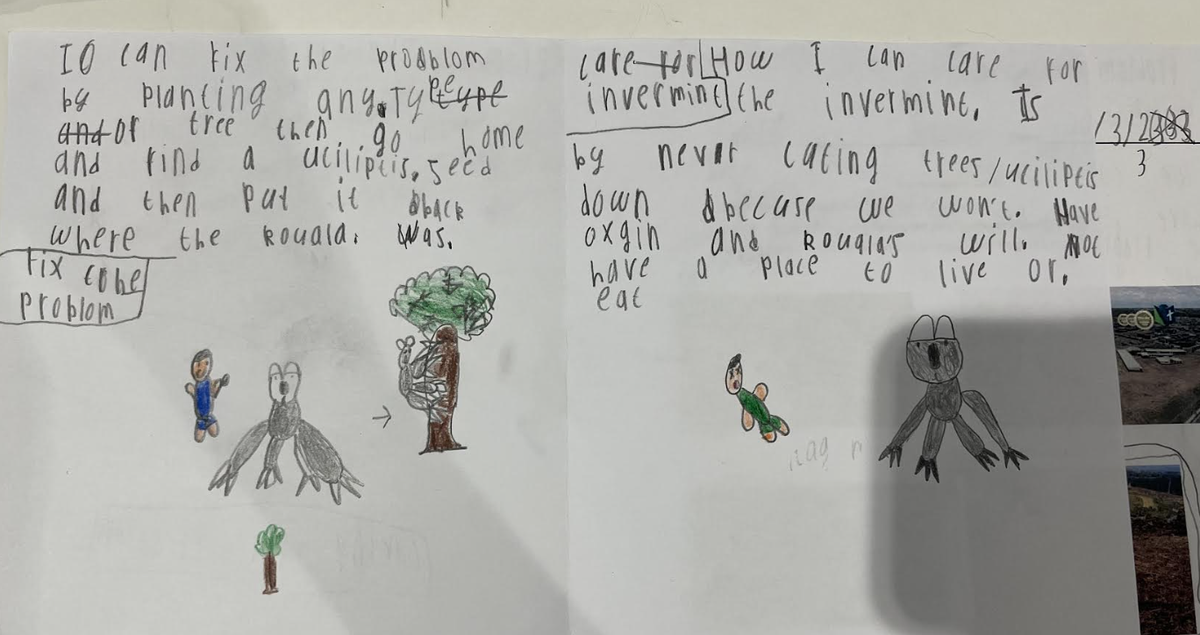 IO can fix the prodblom
by planting any. Type type
and or tree then go home
and find a uciliptis. seed
and then put it back
where the kouala. was.
Fix the
problom
care for How I can care for
invermint the invermint. Is
by never cating trees/uciliptis
down becuse we won't. Have
oxgin and kouala's will. not
have a place to live or.
eat
3